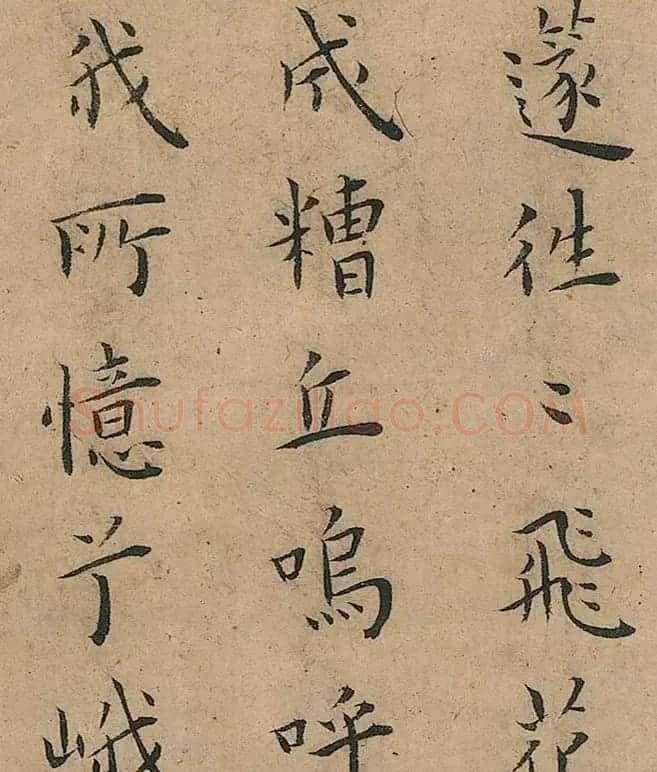 篴往〻飛花
成糟丘嗚呼
我所憶兮峨